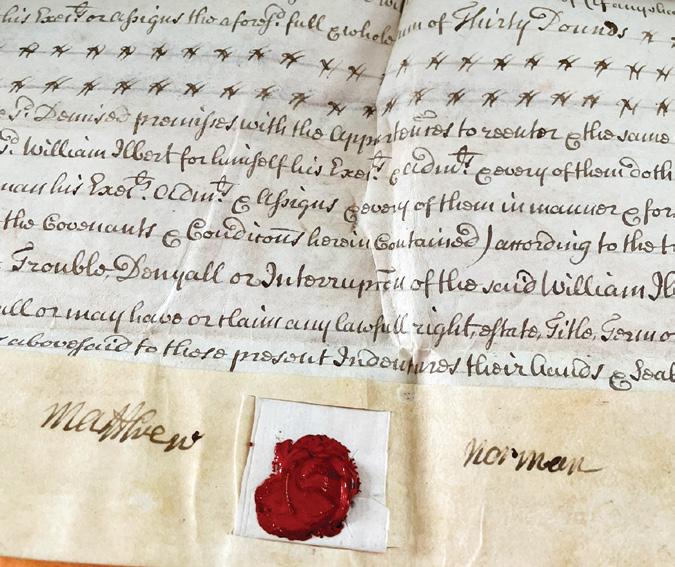 his Exec.rs or assigns the afores.d full & whole sum of Thirty Pounds
S.d Demised premises with the Appurtenñces to reenter & the same
S.d William Ilbert for himself his Exec.rs & Adm.rs & every of them doth
man his Exec.rs Adm.rs & Assigns & every of them in manner & for
the Covenants & Condicons herein Contained) according to the
Trouble, Denyall or Interrupcon of the said William Ilb
all or may have or claim any lawfull right, estate, Title, Term o
abovesaid to these present Indentures their hands & Seal
Matthew Norman